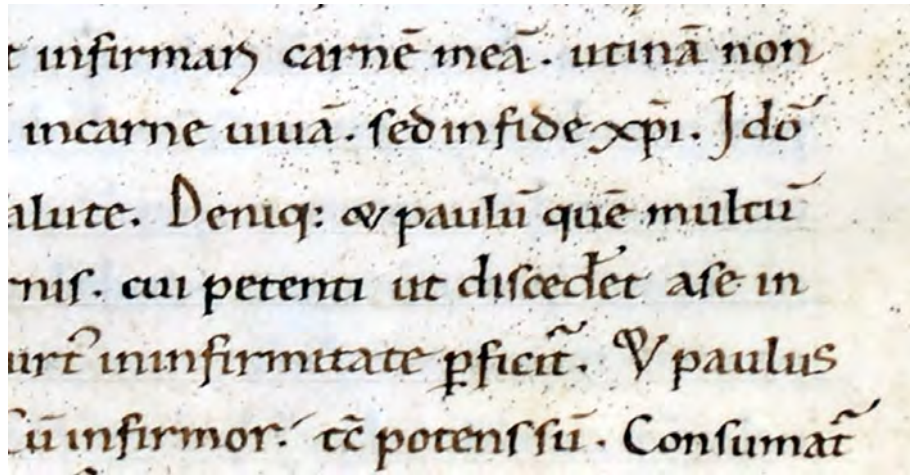 infirmari carnē meā. utinā non
incarne uiuā. sed in fide xp̄i. Idō
alute. Deniq: & paulū quē multū
nis. cui petenti ut discederet ase in
urt᷒ ininfirmitate ꝑficit᷒. & paulus
ū infirmor. tc̄ potens sū. Consumat᷒